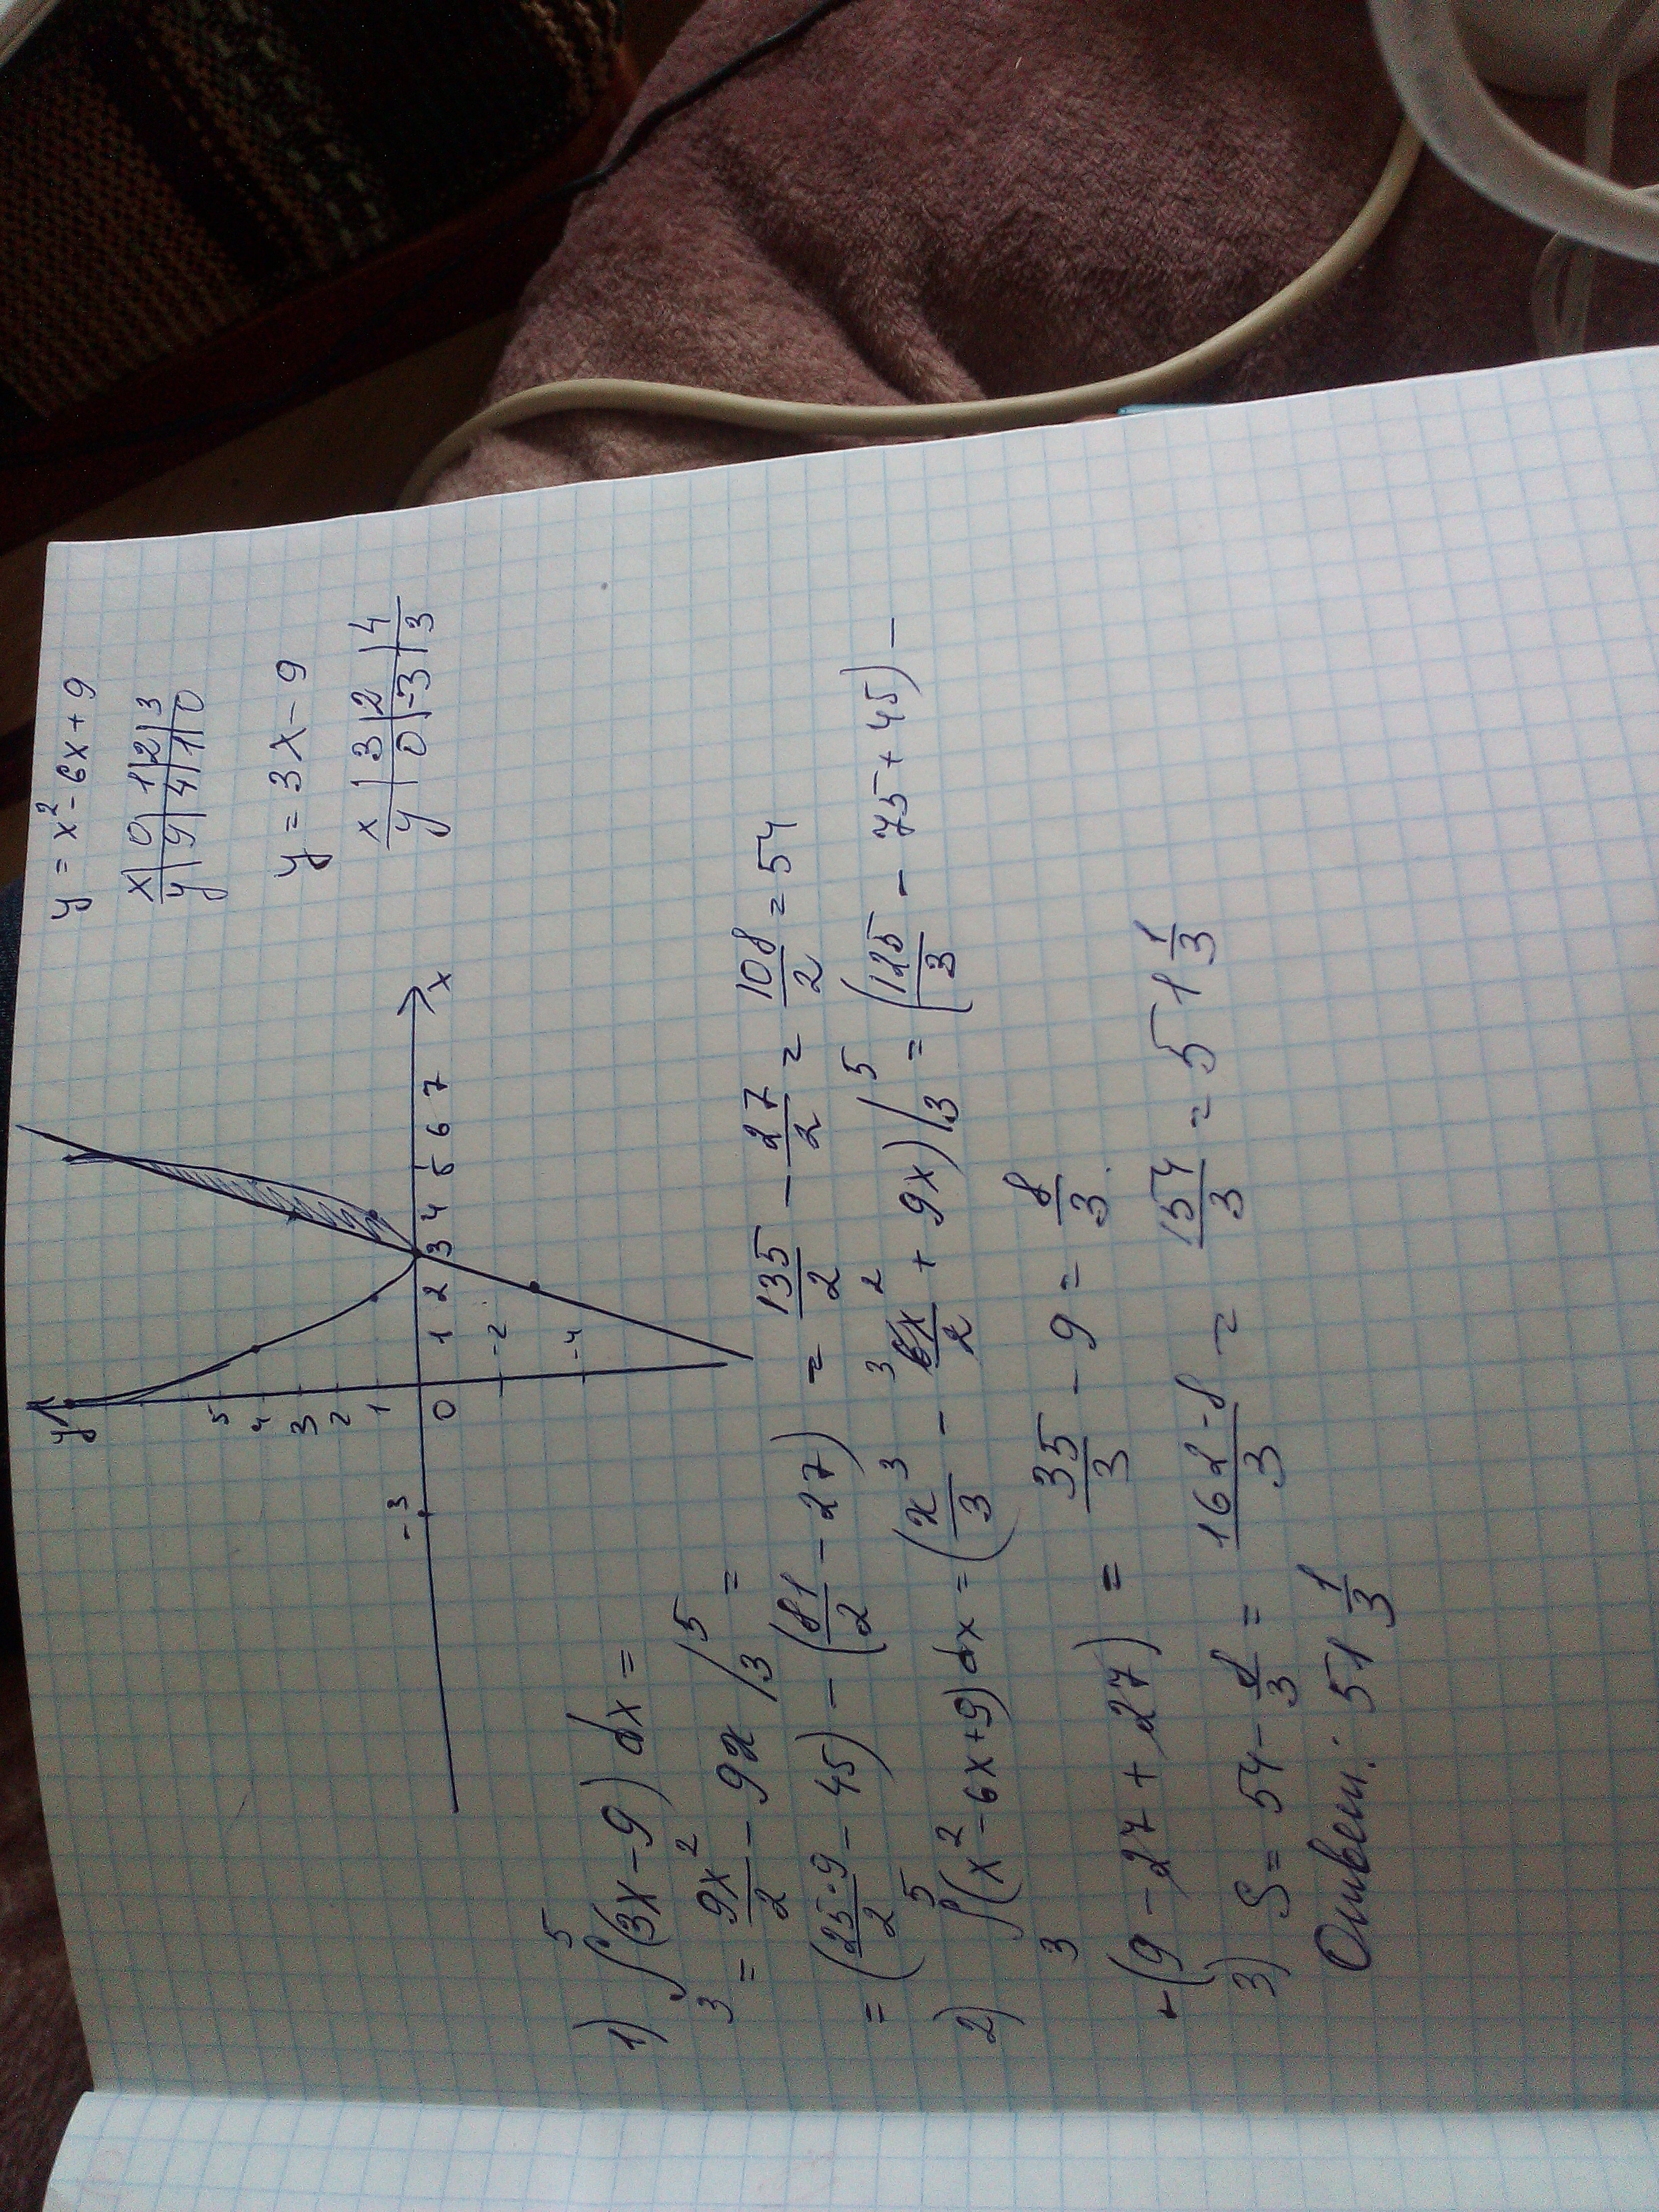 y = x² - 6x + 9
x | 0 | 1 | 2 | 3
y | 9 | 4 | 1 | 0
y = 3x - 9
x | 3 | 2 | 4
y | 0 | -3 | 3
y
5
4
3
2
1
-3 0 1 2 3 4 5 6 7 x
-2
-4
1) ∫₃⁵ (3x - 9) dx =
= 9x²/2 - 9x /₃⁵ =
= (25·9/2 - 45) - (81/2 - 27) = 135/2 - 27/2 = 108/2 = 54
2) ∫₃⁵ (x² - 6x + 9) dx = (x³/3 - ³6x²/2 + 9x) /₃⁵ = (125/3 - 75 + 45) -
- (9 - 27 + 27) = 35/3 - 9 = 8/3.
3) S = 54 - 8/3 = 162-8/3 = 154/3 = 51 1/3
Ответ: 51 1/3